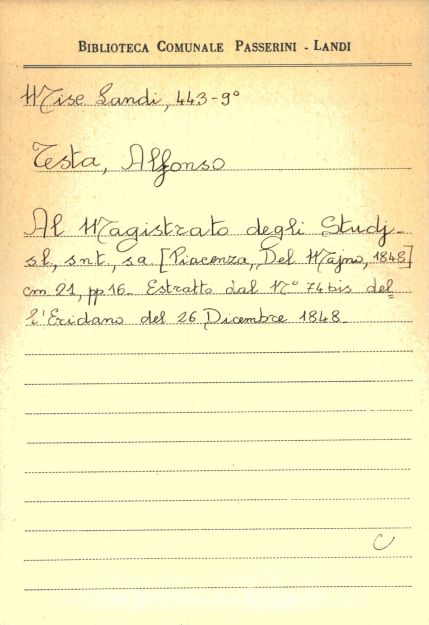 BIBLIOTECA COMUNALE PASSERINI - LANDI
Misc Landi, 443-9°
Testa, Alfonso
Al Magistrato degli Studj -
sl, snt, sa [Piacenza, Del Majno, 1848]
cm 21, pp 16 - Estratto dal N° 74 bis del=
l'Eridano del 26 Dicembre 1848 -
C